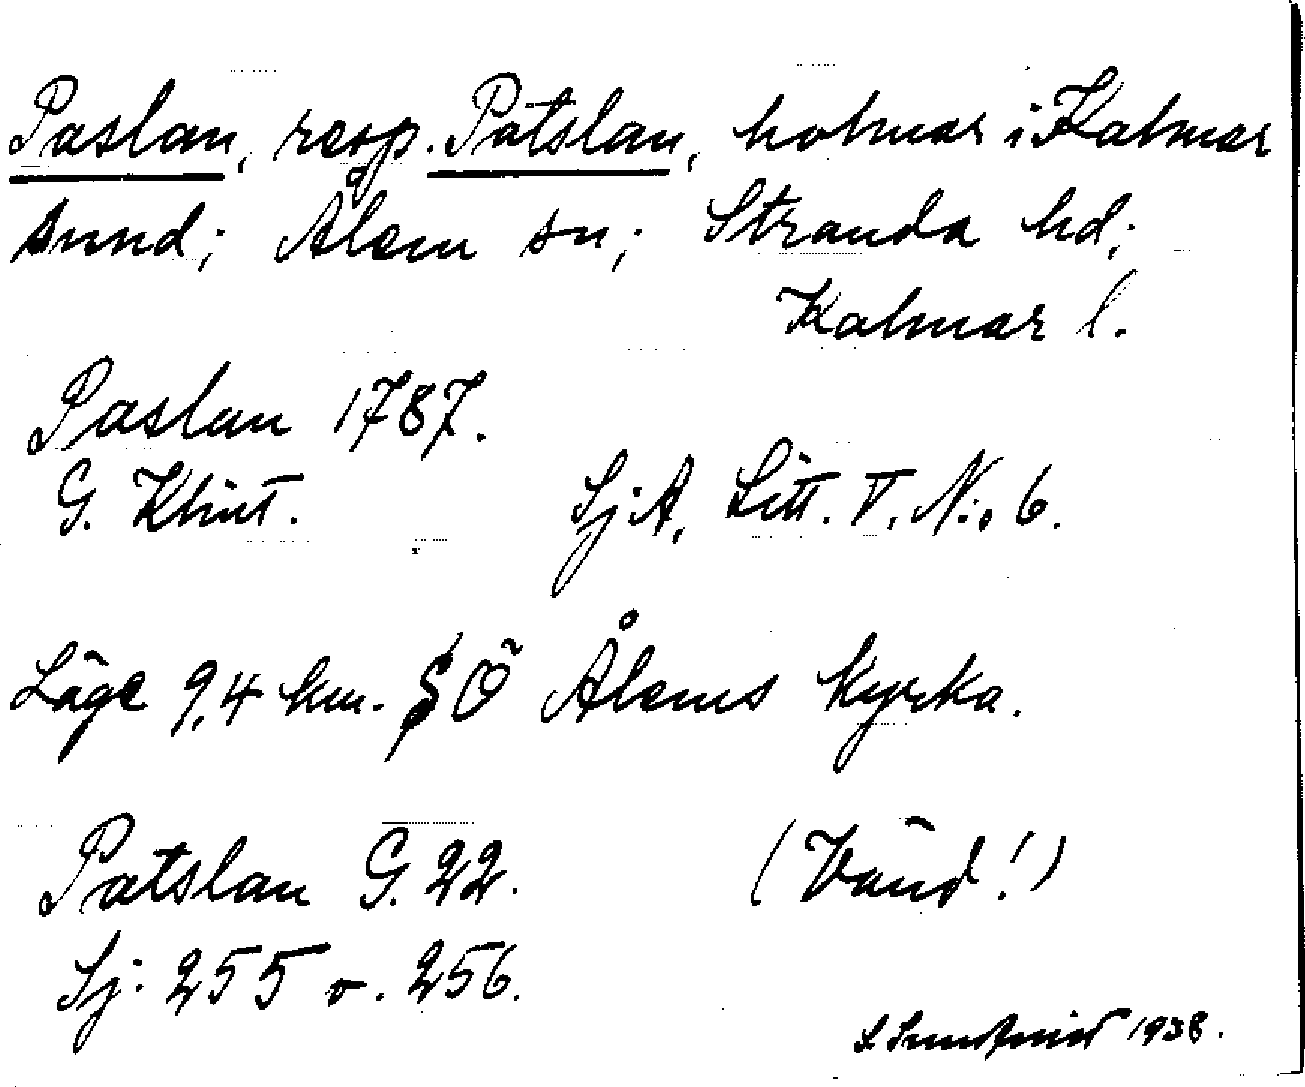 Paslan, resp. Patslan, holmar i Kalmar
sund; Ålem sn; Stranda hd;
Kalmar l.
Paslan 1787.
G. Klint. SjA, Litt. V. N:o 6.
Läge 9,4 km. SÖ Ålems kyrka.
Patslan G. 22. (Vänd!)
Sj: 255 o. 256.
S Sundqvist 1938.